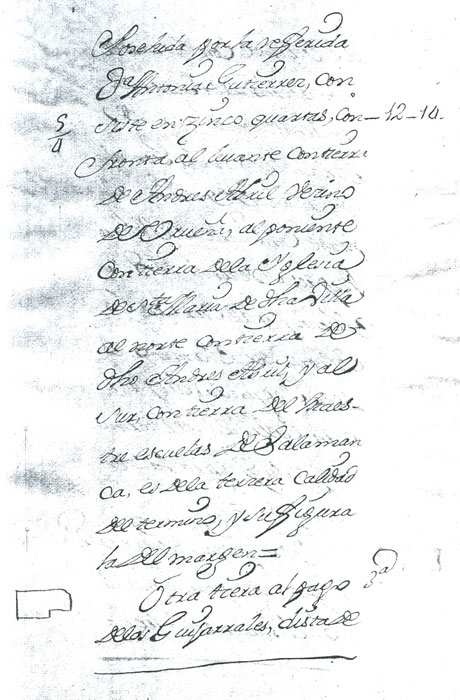 posehida por la refferida
Da Antonia Gutierrez, con
siste en zinco quartas, con– 12–14.
5/4
fronta, al lebante con tierra
de Andres Abril Vezino
de Urueña, al poniente
con tierra de la Yglesia
de Sta Maria de dha Villa
al norte con tierra de
dho Andres Abril, y al
sur, con tierra del Maes-
tre escuelas de Salaman
ca, es de la terzera Calidad
del termino, y su figura
la del margen=
Otra tierra al pago
de los Guijarrales, dista de